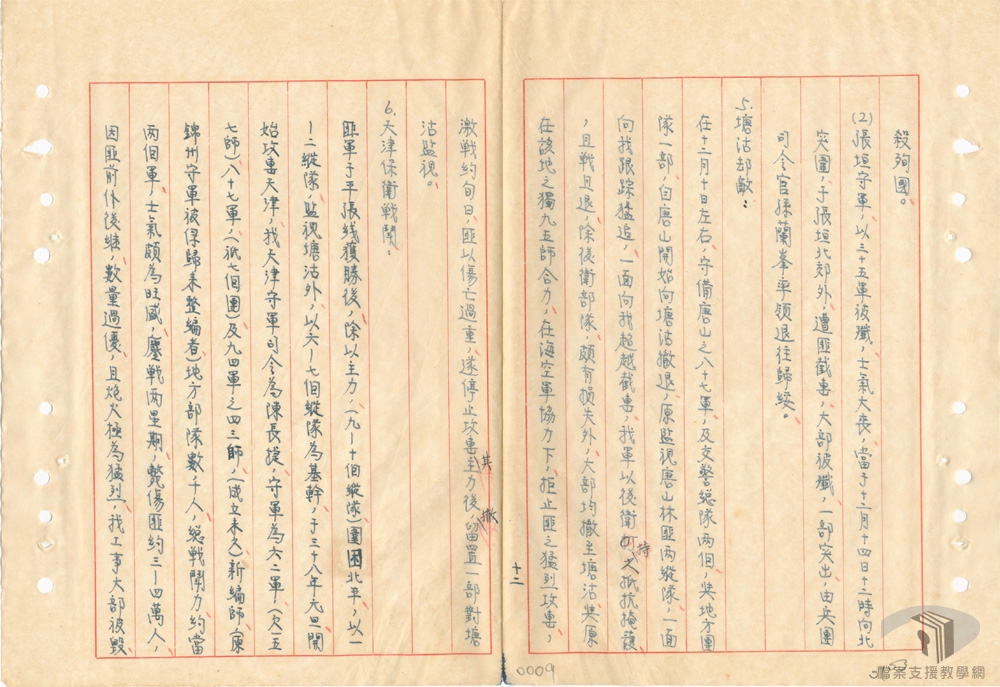 殺殉國。
(2)張垣守軍，以三十五軍被殲，士氣大喪，當于十二月十四日十三時向北
突圍，于張垣北郊外，遭匪截擊，大部被殲，一部突出，由兵團
司令官孫蘭峯率領退往歸綏。
5.塘沽却敵：
在十二月十日左右，守備唐山之八十七軍，及交警總隊兩個，與地方團
隊一部，自唐山開始向塘沽撤退，原監視唐山林匪兩縱隊，一面
向我跟踪猛追，一面向我超越截擊，我軍以後衛 持久抵抗掩護
，且戰且退，除後衛部隊，頗有損失外，大部均撤至塘沽與原
在該地之獨九五師合力，在海空軍協力下，拒止匪之猛烈攻擊，
十二
激戰約旬日，匪以傷亡過重，遂停止攻擊其主力後撤，留置一部對塘
沽監視。
6.天津保衛戰鬪：
匪軍于平張綫獲勝後，除以主力，(九-十個縱隊)圍困北平，以一
-二縱隊，監視塘沽外，以六-七個縱隊為基幹，于三十八年元旦開
始攻擊天津，我天津守軍司令為陳長捷，守軍為六二軍，(欠一五
七師)八十七軍，(祇七個團)及九四軍之四三師，(成立未久)新編師(原
錦州守軍被俘歸來整編者)地方部隊數千人，總戰鬪力，約當
兩個軍，士氣頗為旺盛，鏖戰兩星期，斃傷匪約三-四萬人，
因匪前仆後繼，數量過優，且炮火極為猛烈，我工事大部被毀
0009
檔案支援教學網